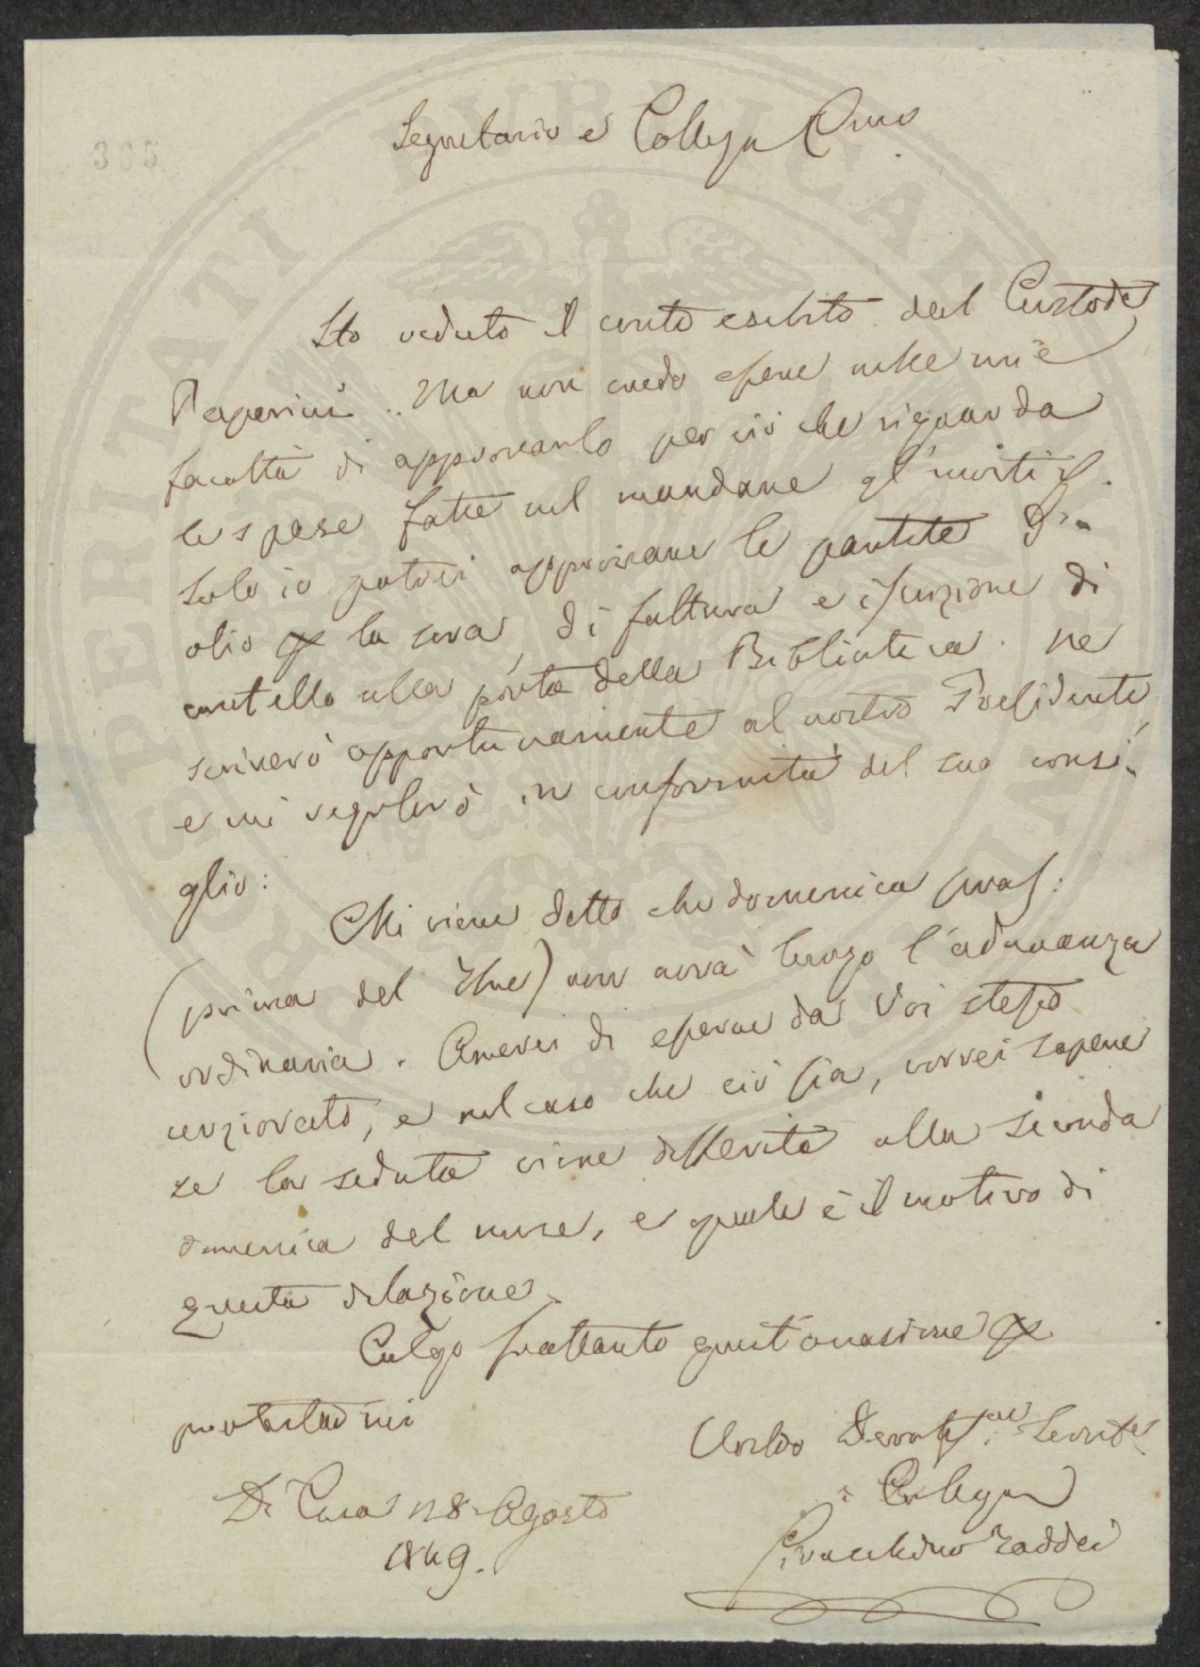 305
Segretario e Collega Cmo
Ho veduto il conto esibito dal Custode
Paperini. Ma non credo essere nelle mie
facoltà di approvarlo per ciò che riguarda
le spese fatte nel mandare gl'inviti.
Solo io potrei approvare le partite
olio la sera, di fattura e iscrizione di
cartello alla porta della Biblioteca. Ne
scriverò opportunamente al nostro Presidente,
e mi regolerò in conformità del suo consi-
glio:
Mi viene detto che domenica pross:
(prima del 7bre) non avrà luogo l'adunanza
ordinaria. Amerei di esserne da Voi stesso
cerziorato, e nel caso che ciò sia, vorrei sapere
se la seduta viene differita alla seconda
domenica del mese, e quale è il motivo di
questa dilazione.
Colgo frattanto quest'occasione
protestarmi
Di Casa 28 Agosto
1849.
Vostro Devotiss. Servitore
e Collega
Giovacchino Taddei